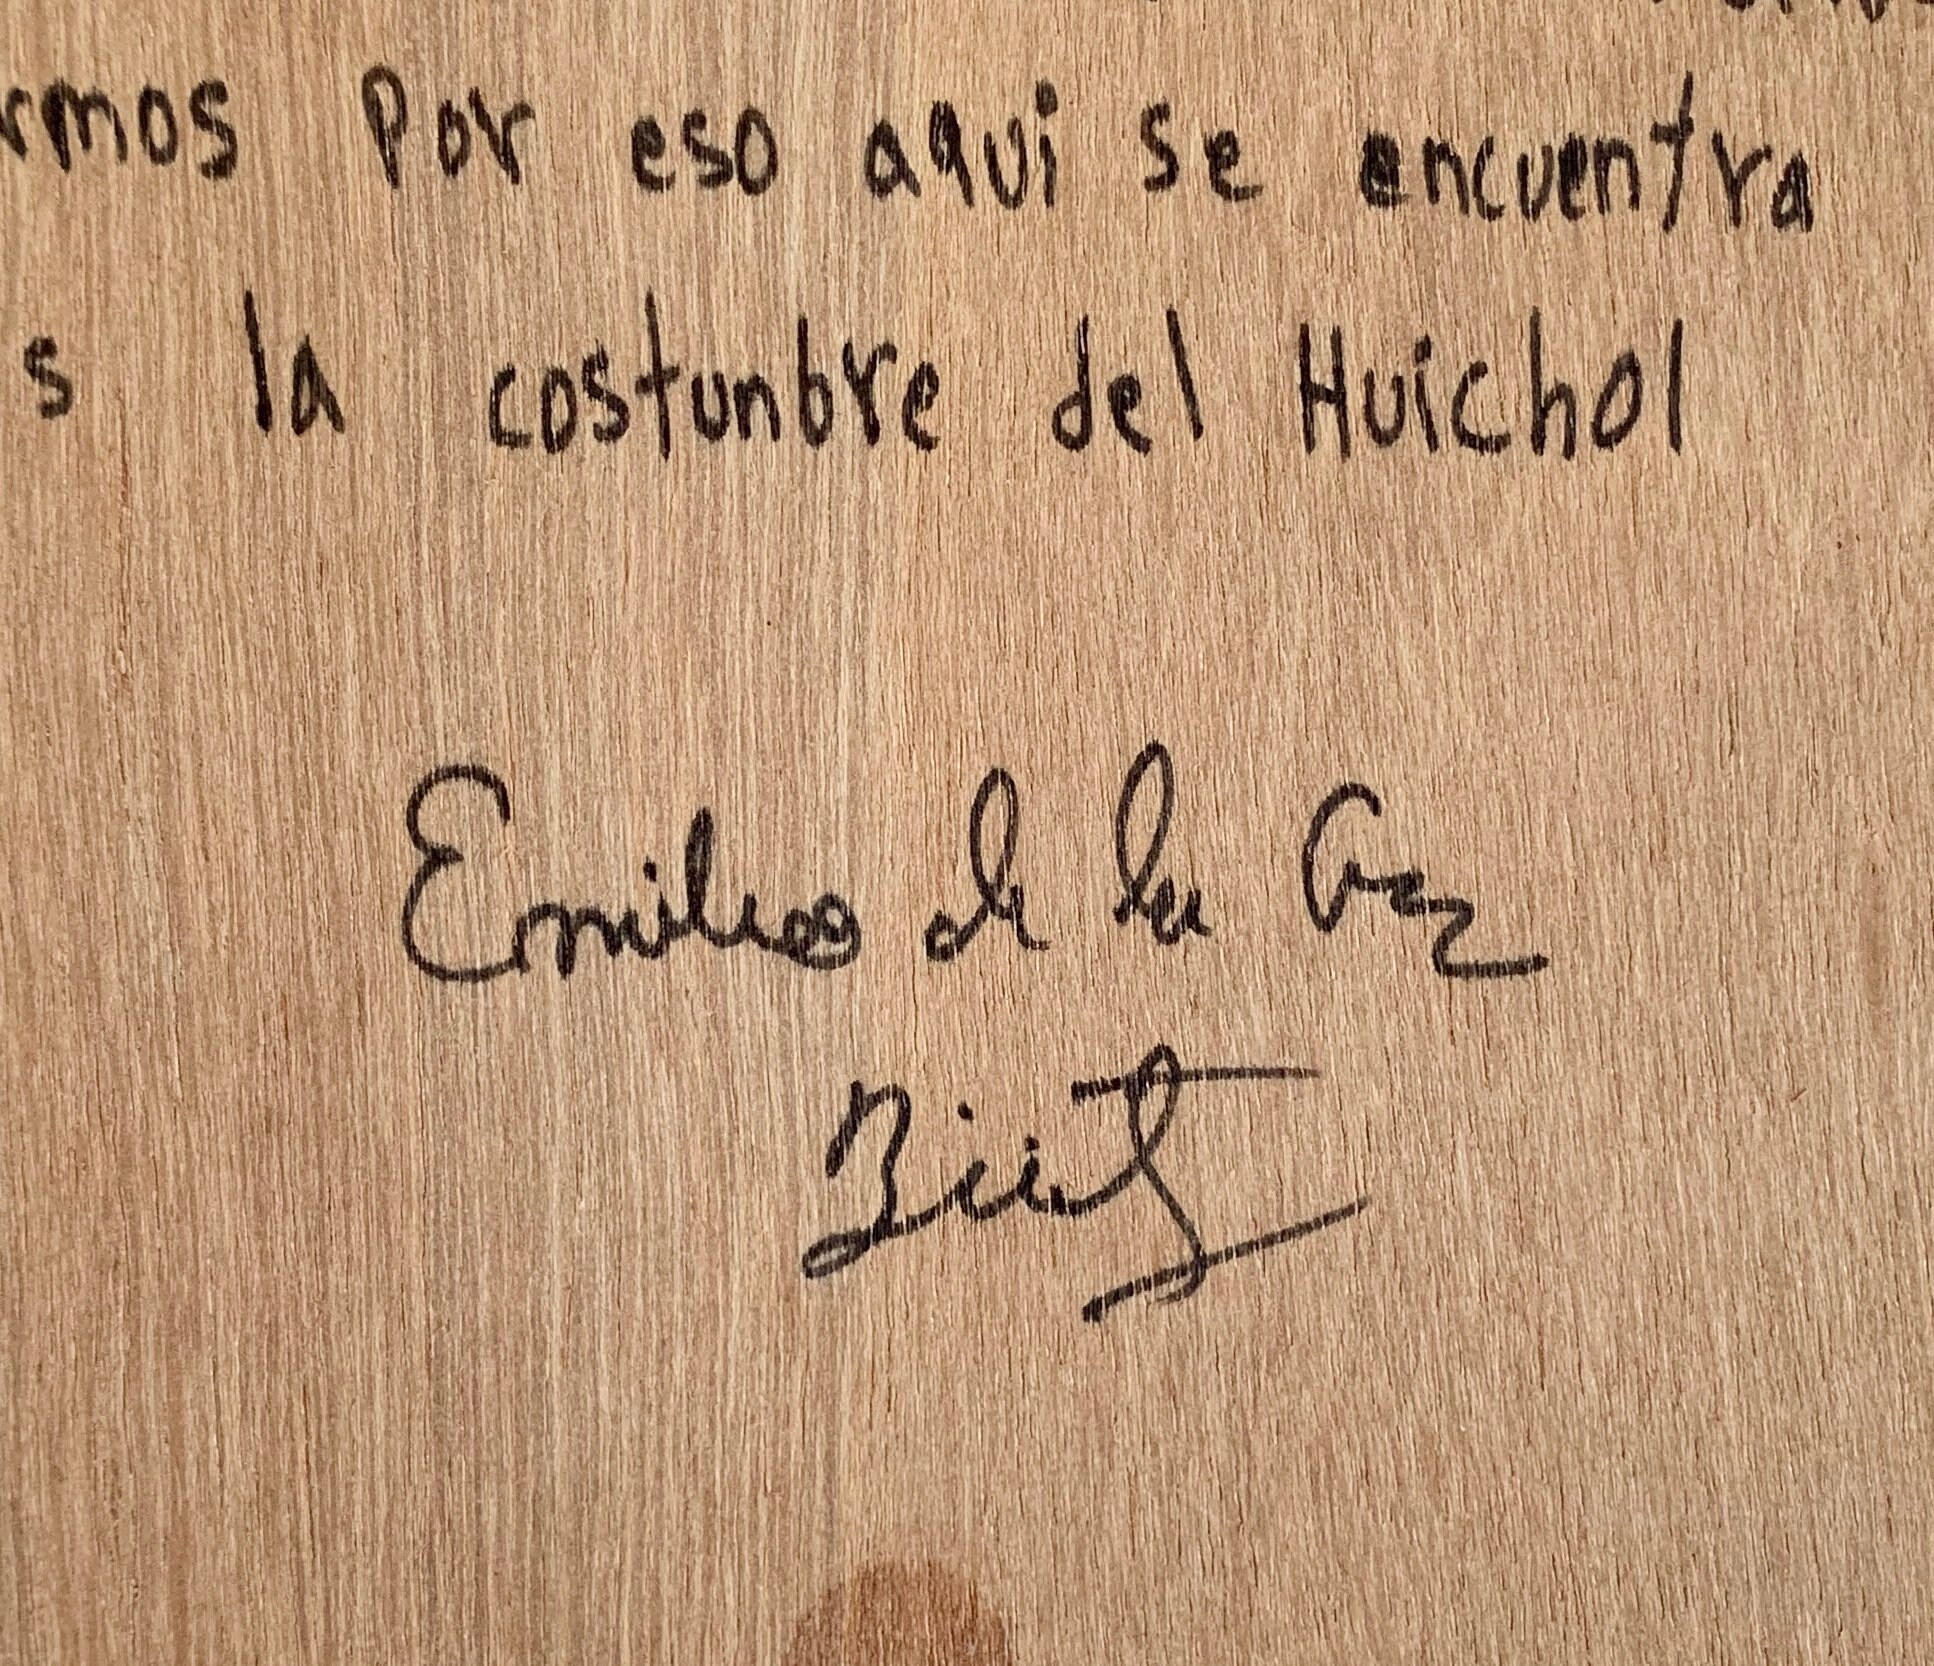 rmos Por eso aqui se encuentra
s la costunbre del Huichol
Emilio de la Cruz